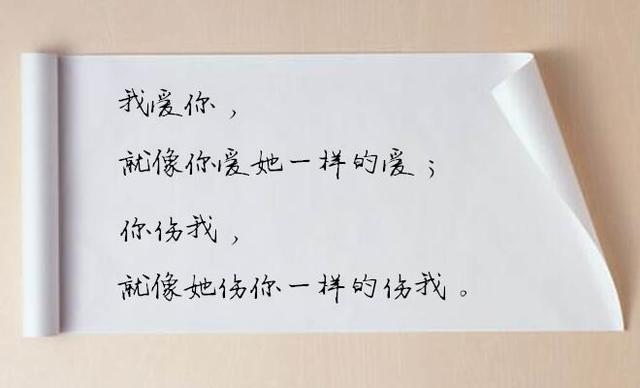 我爱你，
就像你爱她一样的爱；
你伤我，
就像她伤你一样的伤我。